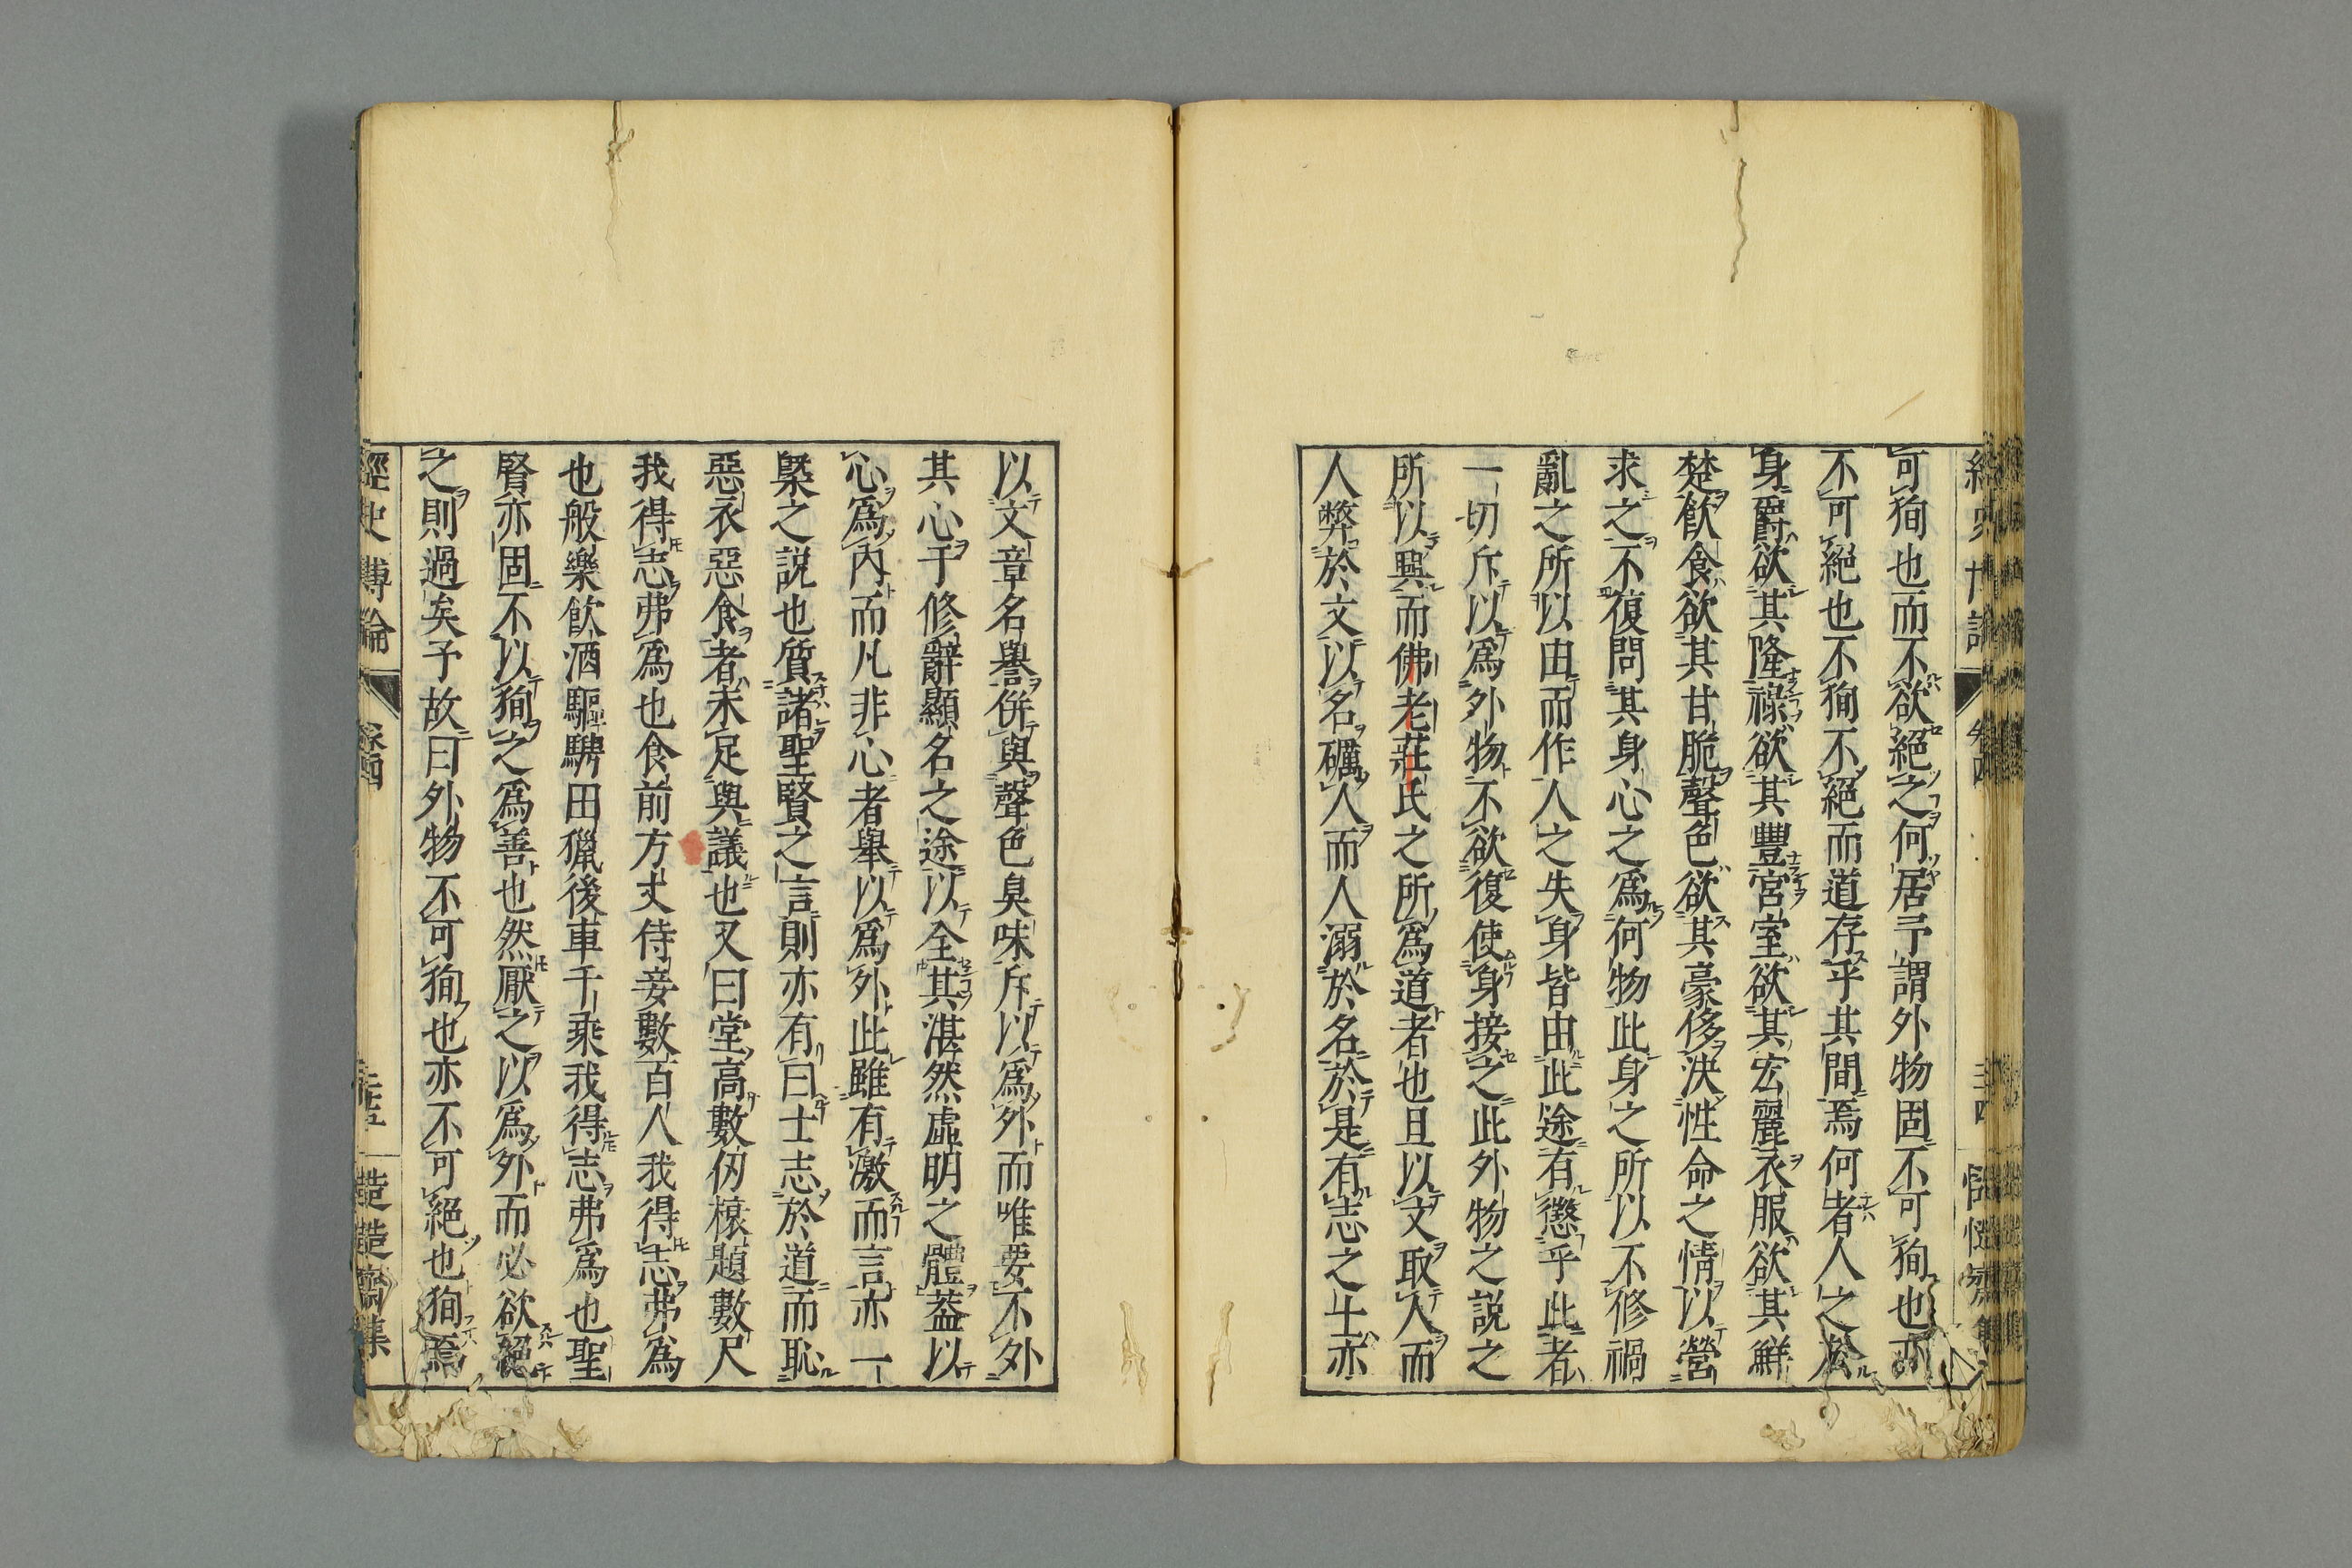 可狥也而不欲絕之何居予謂外物固不可狥也亦
不可絕也不狥不絕而道存乎其間焉何者人之於
身爵欲其隆祿欲其豐宮室欲其宏麗衣服欲其鮮
楚飲食欲其甘脆聲色欲其豪侈決性命之情以營
求之不復問其身心之爲何物此身之所以不修禍
亂之所以由而作人之失身皆由此途有懲乎此者
一切斥以爲外物不欲復使身接之此外物之說之
所以興而佛老莊氏之所爲道者也且以文取人而
人弊於文以名礪人而人溺於名於是有志之士亦
以文章名譽併與聲色臭味斥以爲外而唯要不外
其心于修辭顯名之途以全其湛然虛明之體蓋以
心爲內而凡非心者舉以爲外此雖有激而言亦一
槩之說也質諸聖賢之言則亦有曰士志於道而恥
惡衣惡食者未足與議也又曰堂高數仞榱題數尺
我得志弗爲也食前方丈侍妾數百人我得志弗爲
也般樂飲酒驅騁田獵後車千乘我得志弗爲也聖
賢亦固不以狥之爲善也然厭之以爲外而必欲絕
之則過矣予故曰外物不可狥也亦不可絕也狥焉
經史博論
卷四
三十五
慥慥齋集